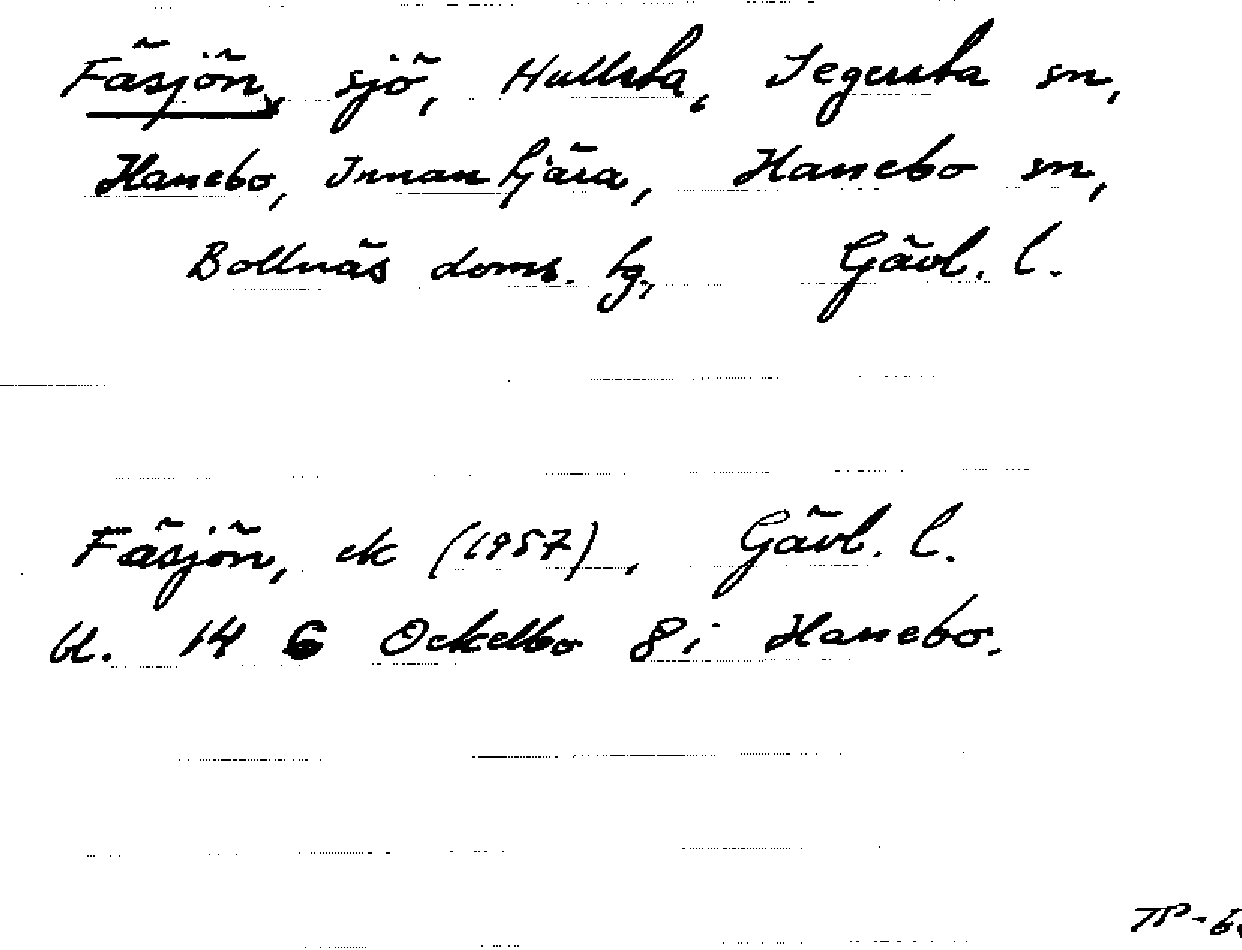 Fäsjön, sjö, Hullsta, Segersta sn,
Hanebo, Innantjära, Hanebo sn,
Bollnäs doms. tg, Gävl. l.
Fäsjön, ek (1957), Gävl. l.
Bl. 14 G Ockelbo 8 i Hanebo.